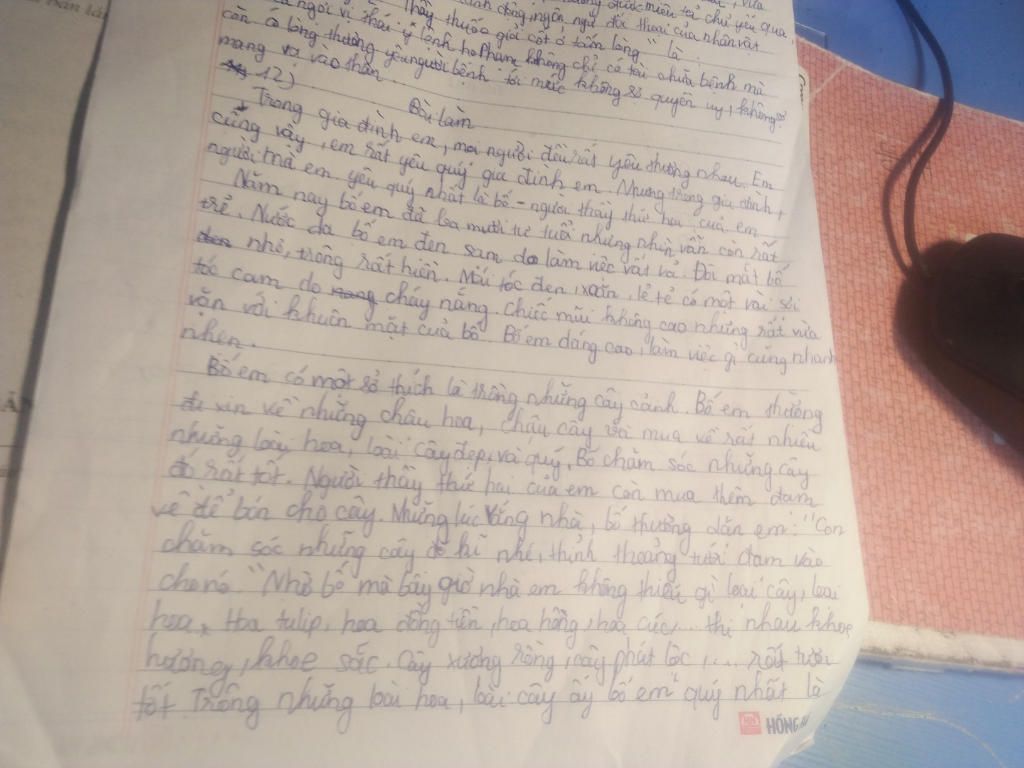 được miêu tả chủ yếu qua,
hành động, ngôn ngữ đối thoại của nhân vật
Thầy thuốc giỏi cốt ở tấm lòng" là
ca ngợi vị thái y lệnh họ Phạm không chỉ có tài chữa bệnh mà
còn có lòng thương yêu người bệnh tới mức không sợ quyền uy, không sợ
mang vạ vào thân.
12)
Bài làm
Trong gia đình em, mọi người đều rất yêu thương nhau. Em
cũng vậy, em rất yêu quý gia đình em. Nhưng trong gia đình,
người mà em yêu quý nhất là bố - người thầy thứ hai của em
Năm nay bố em đã ba mươi tư tuổi nhưng nhìn vẫn còn rất
trẻ. Nước da bố em đen sạm do làm việc vất vả. Đôi mắt bố
nhỏ, trông rất hiền. Mái tóc đen, xoăn, lẻ tẻ có một vài sợi
tóc cam do cháy nắng. Chiếc mũi không cao nhưng rất vừa
vặn với khuôn mặt của bố. Bố em dáng cao, làm việc gì cũng nhanh
nhẹn.
Bố em có một sở thích là trồng những cây cảnh. Bố em thường
đi xin về những chậu hoa, chậu cây và mua về rất nhiều
những loài hoa, loài cây đẹp và quý. Bố chăm sóc những cây
đó rất tốt. Người thầy thứ hai của em còn mua thêm đạm
về để bón cho cây. Những lúc vắng nhà, bố thường dặn em: "Con
chăm sóc những cây đó kĩ nhé, thỉnh thoảng tưới đạm vào
cho nó." Nhờ bố mà bây giờ nhà em không thiếu gì loài cây, loài
hoa. Hoa tulip, hoa đồng tiền, hoa hồng, hoa cúc,... thi nhau khoe
hương, khoe sắc. Cây xương rồng, cây phát lộc,... rất tươi
tốt. Trong những loài hoa, loài cây ấy bố em quý nhất là
HỒNG